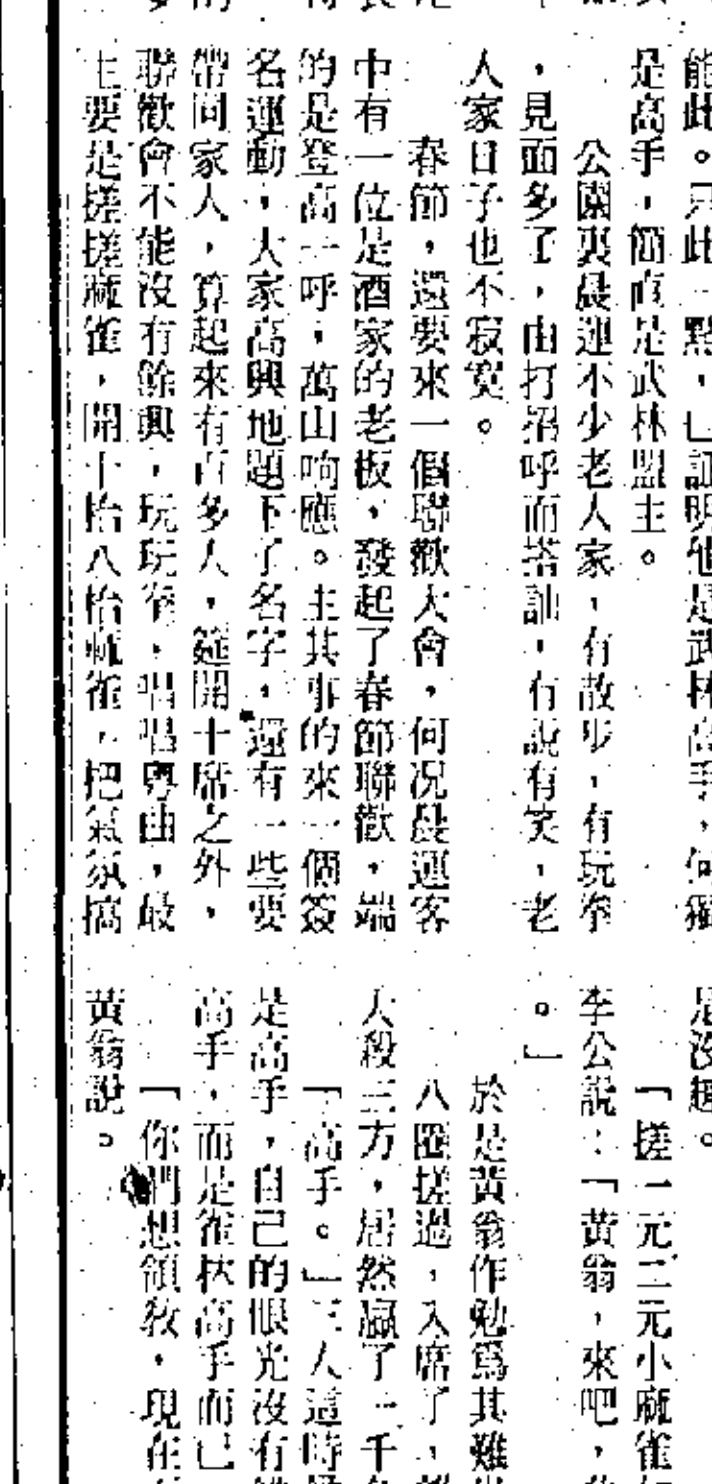 能此。只此一點，已証明他是武林高手，何獨
是高手，簡直是武林盟主。
公園裏晨運不少老人家，有散步，有玩拳
，見面多了，由打招呼而搭訕，有說有笑，老
人家日子也不寂寞。
春節，還要來一個聯歡大會，何况晨運客
中有一位是酒家的老板，發起了春節聯歡，端
的是登高一呼，萬山响應。主其事的來一個簽
名運動，大家高興地題下了名字，還有一些要
帶同家人，算起來有百多人，筵開十席之外，
聯歡會不能沒有餘興，玩玩拳，唱唱粵曲，最
主要是搓搓麻雀，開十枱八枱麻雀，把氣氛搞
是沒趣。
「搓一元二元小麻雀
李公說：「黃翁，來吧，
。」
於是黃翁作勉爲其難
八圈搓過，入席了，
大殺三方，居然贏了一千
「高手。」三人這時
是高手，自己的眼光沒有
高手，而是雀林高手而已
「你們想領教，現在
黃翁說。